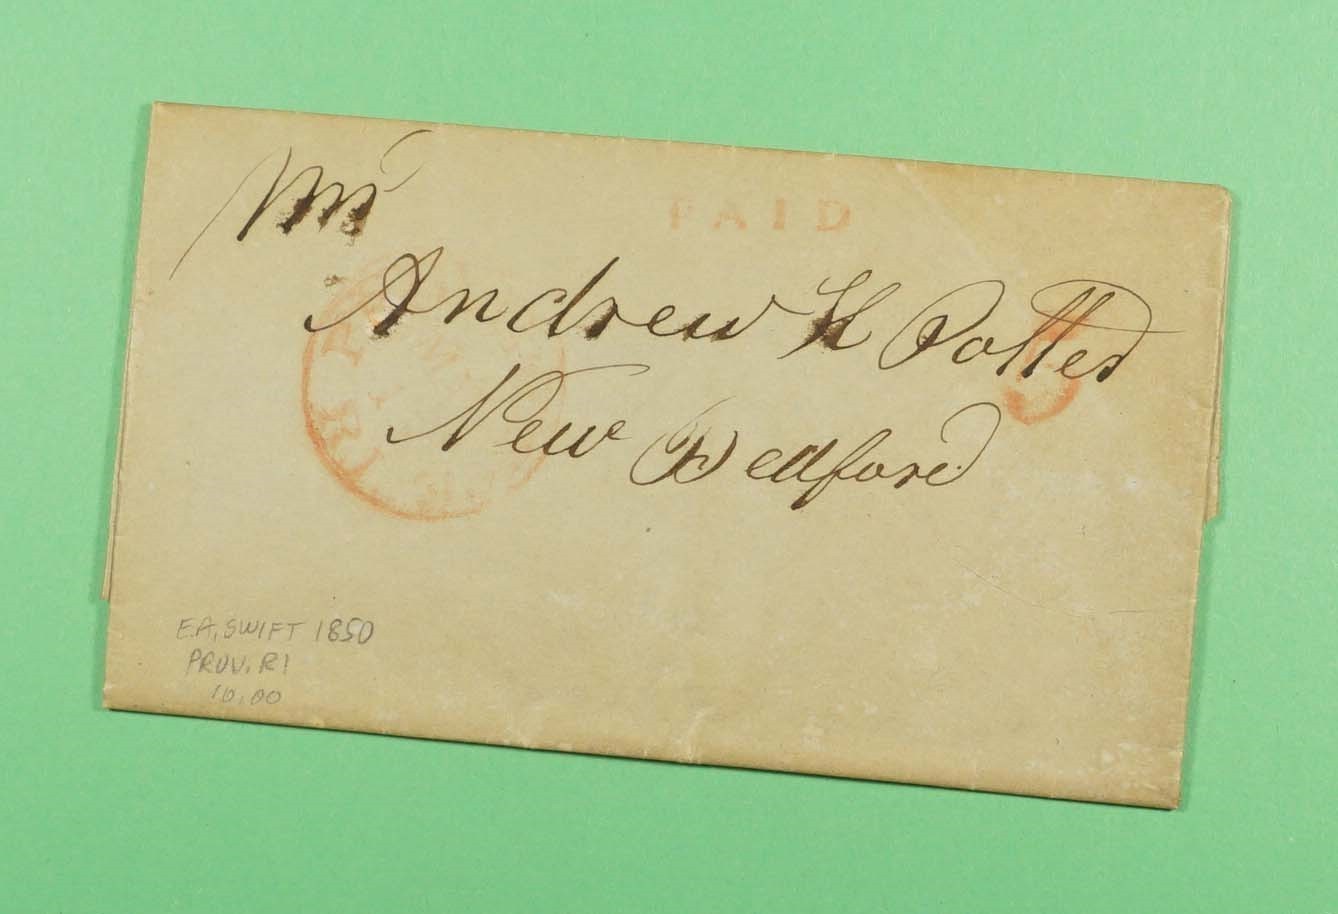 Mr
PAID
Andrew H Potter
5
New Bedford
E.A. SWIFT 1850
PROV. RI
10.00